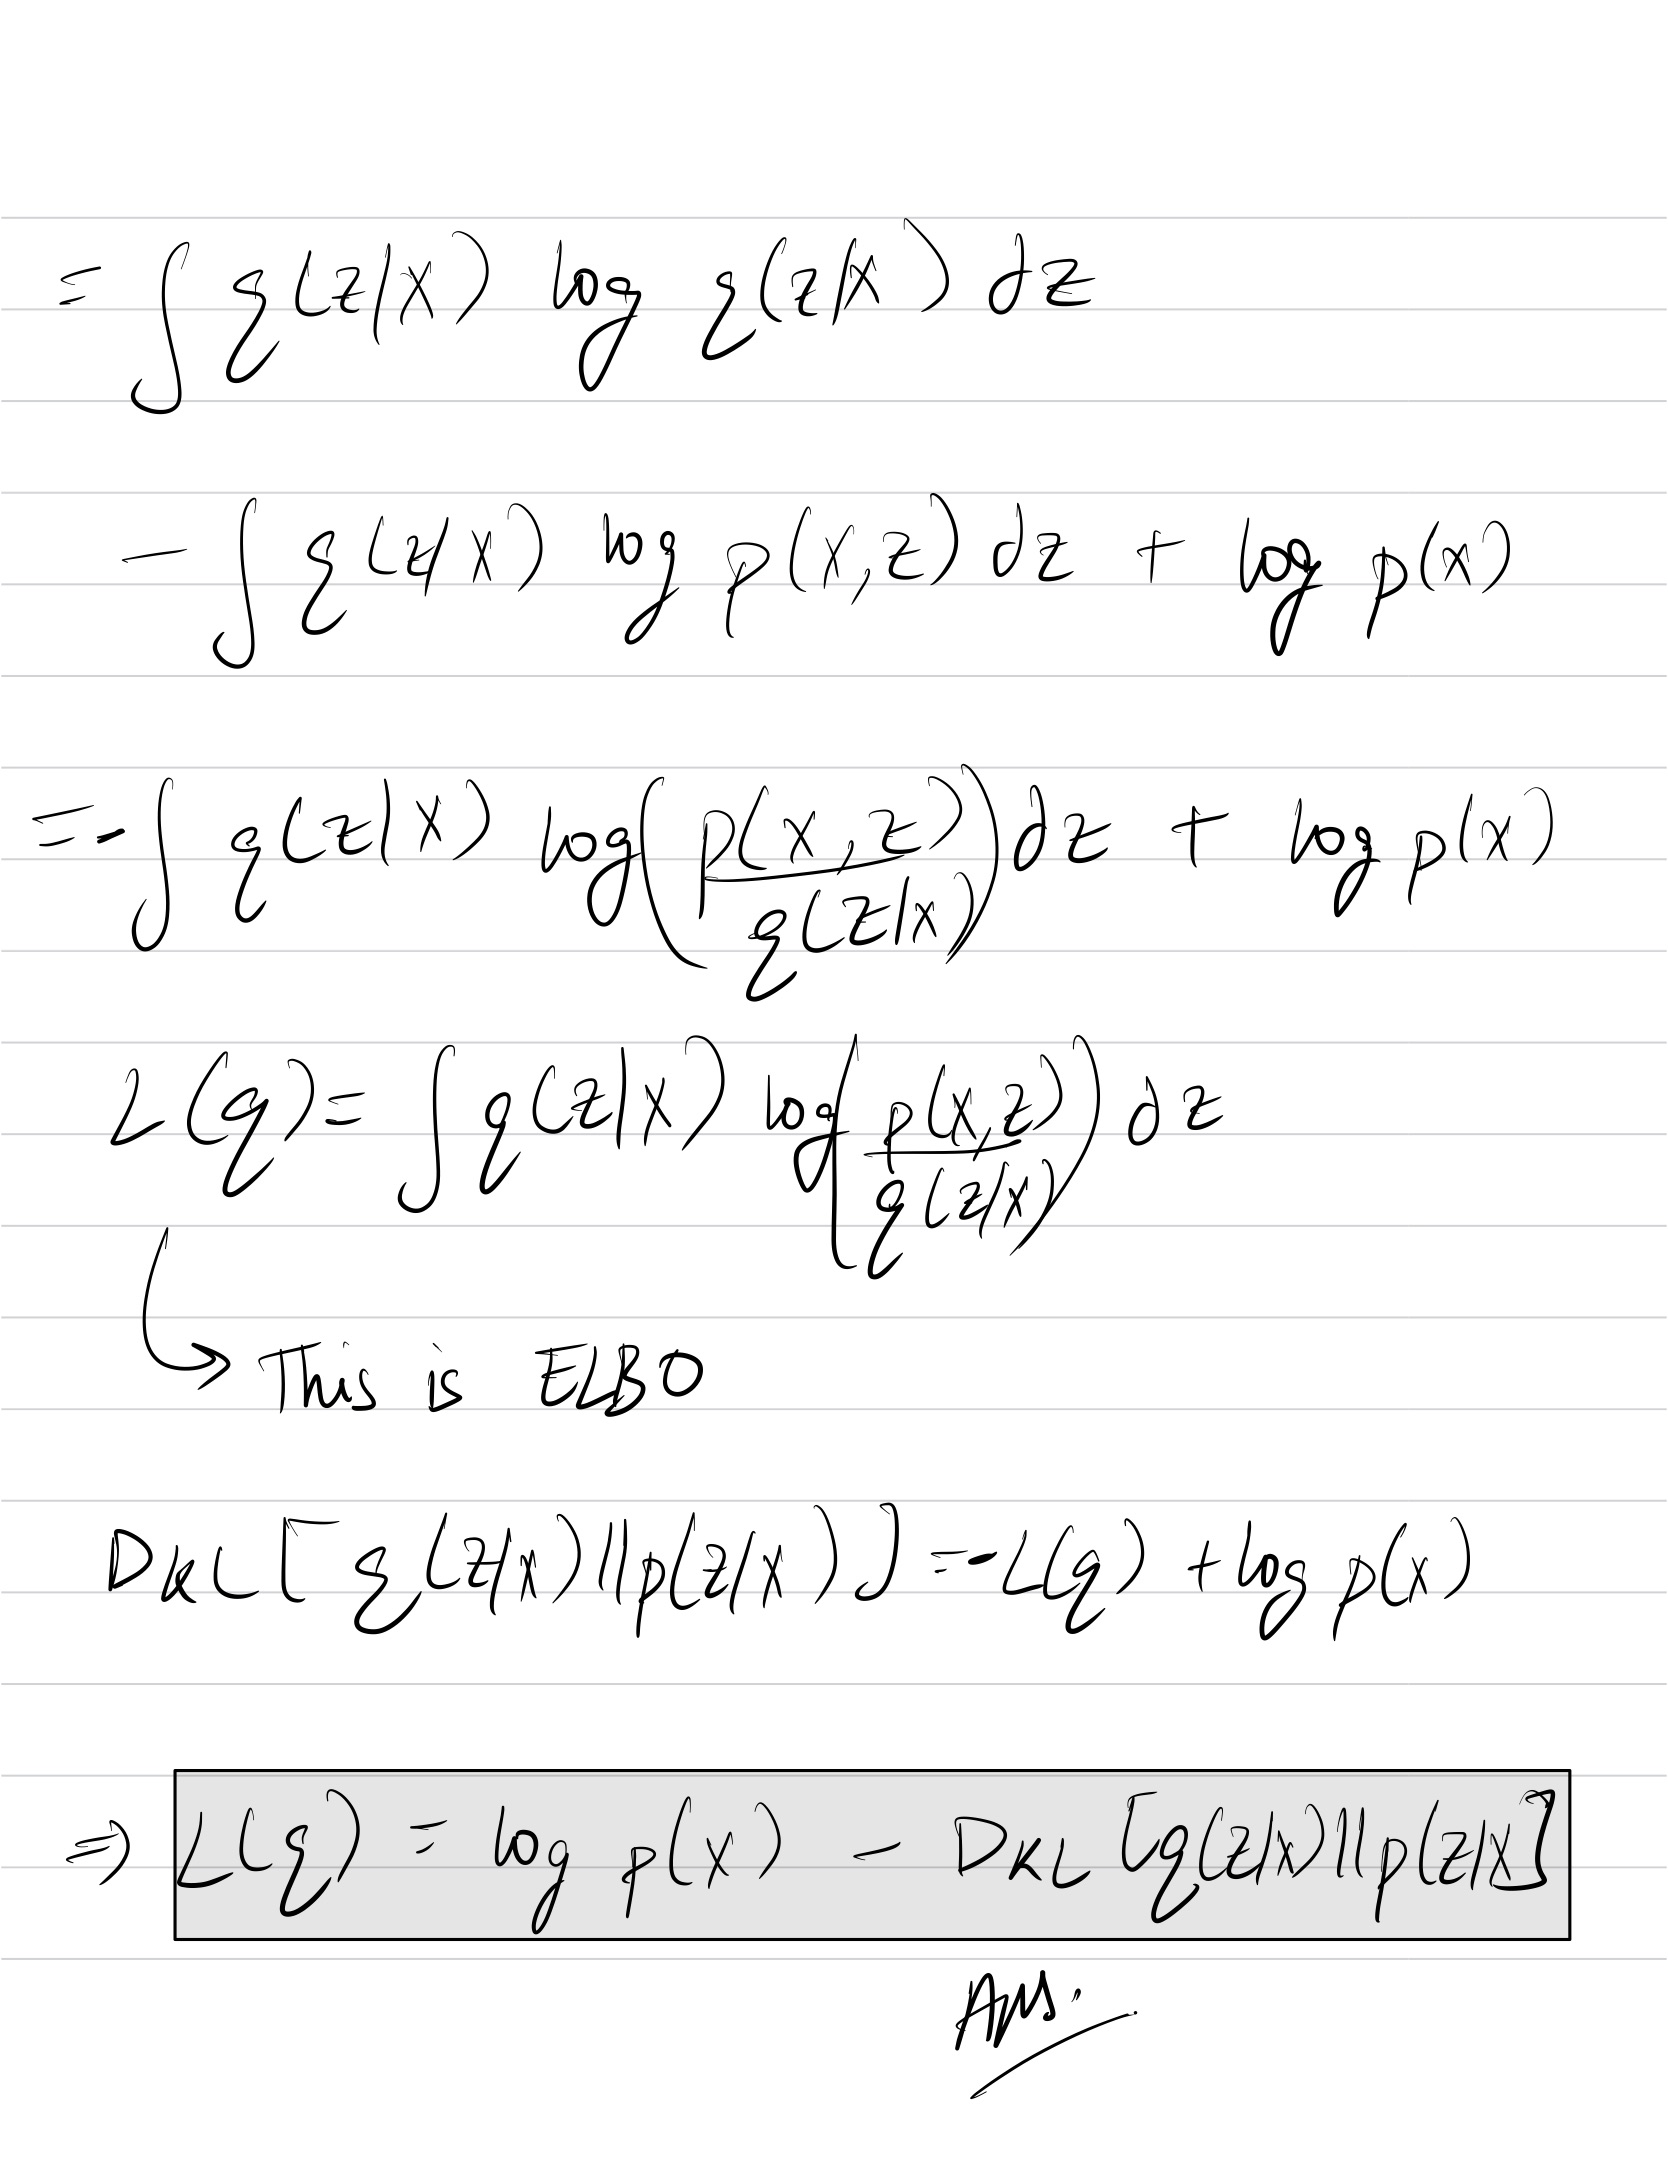 = ∫ q(z|x) log q(z|x) dz
- ∫ q(z|x) log p(x,z) dz + log p(x)
= - ∫ q(z|x) log(p(x,z)/q(z|x)) dz + log p(x)
L(q) = ∫ q(z|x) log(p(x,z)/q(z|x)) dz
→ This is ELBO
DKL [q(z|x)||p(z|x)] = -L(q) + log p(x)
⇒ L(q) = log p(x) - DKL [q(z|x)||p(z|x]
Ans.